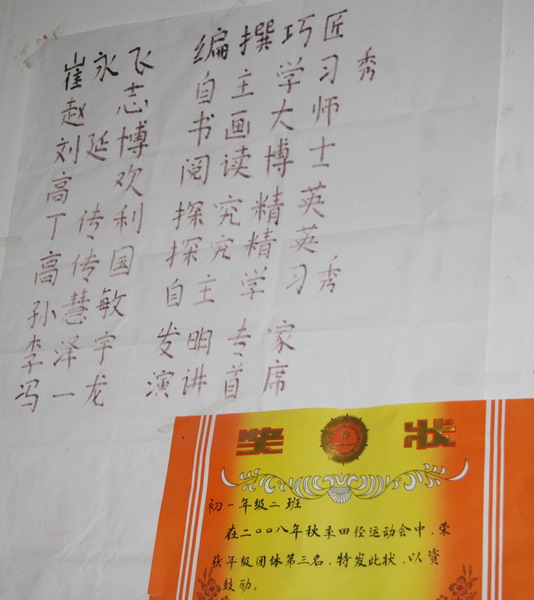 崔永飞 编撰巧匠
赵志 自主学习秀
刘延博 书画大师
高欢 阅读博士
丁传利 探究精英
高传国 探究精英
孙慧敏 自主学习秀
李泽宇 发明专家
冯一龙 演讲首席
奖状
初一年级二班
在二〇〇八年秋季田径运动会中,荣
获年级团体第三名,特发此状,以资
鼓励。